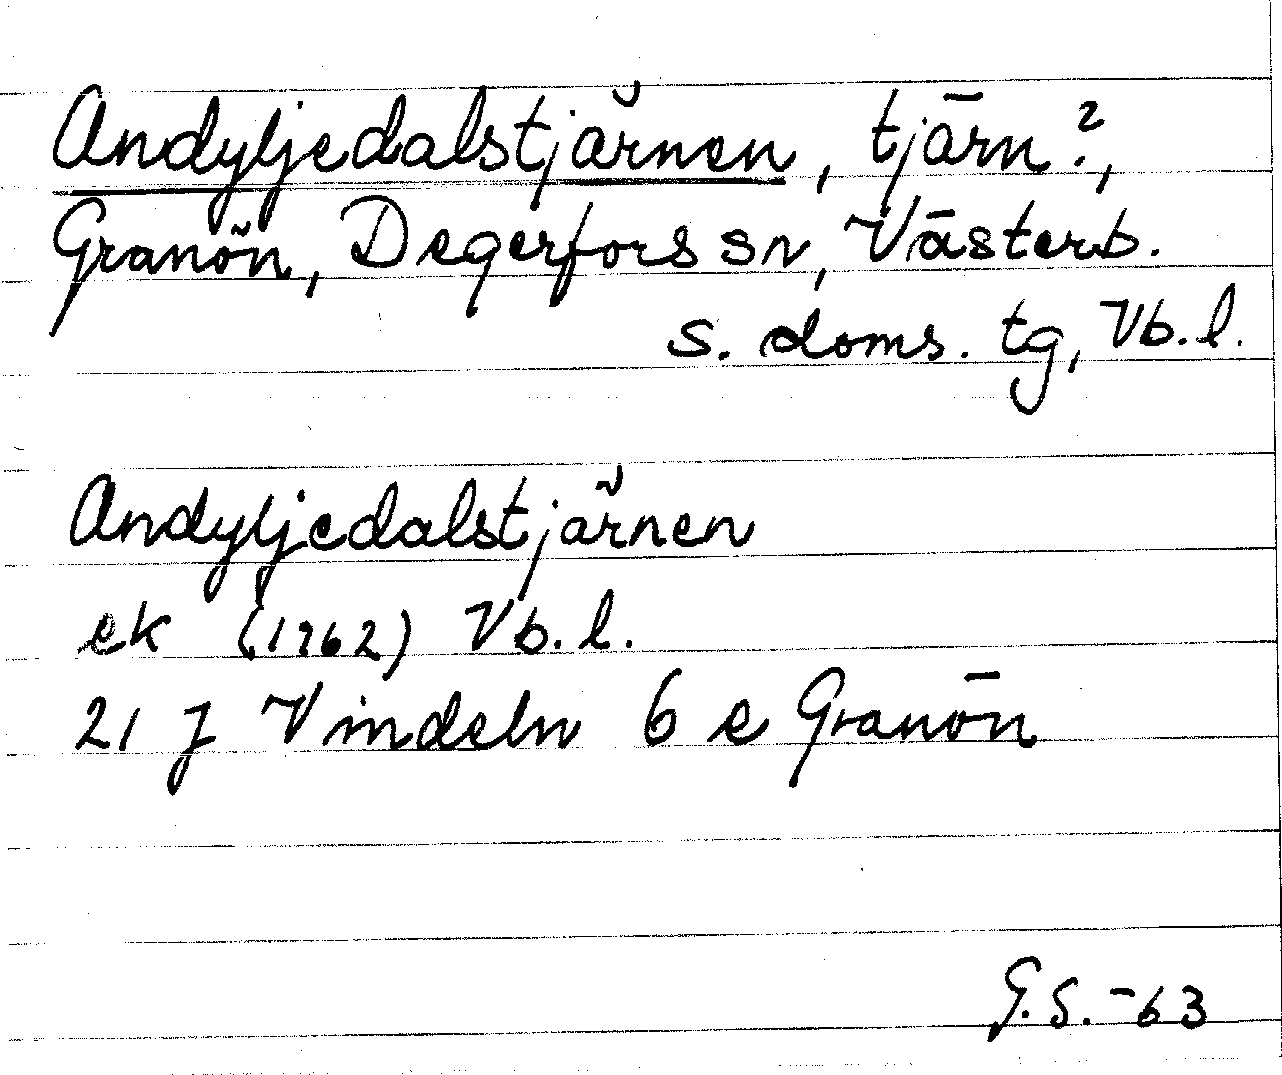 Andyljedalstjärnen, tjärn?,
Granön, Degerfors sn, Västerb.
s. doms. tg, Vb. l.
Andyljedalstjärnen
ek (1962) Vb. l.
21 J Vindeln 6 e Granön
G.S. -63